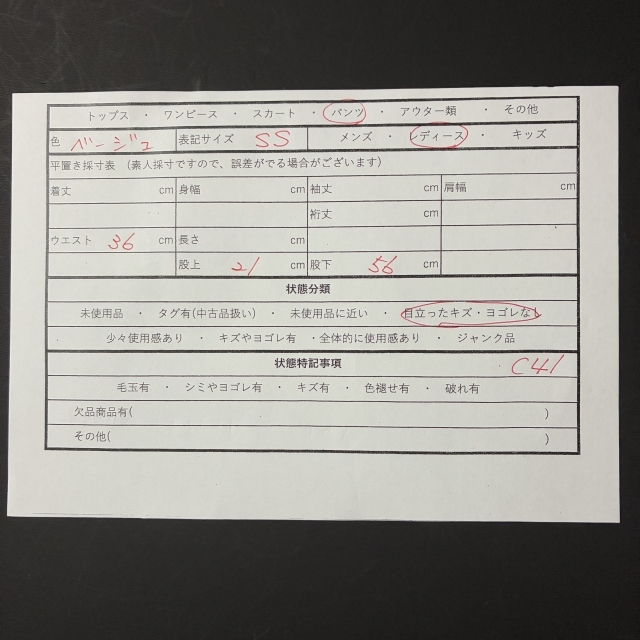 トップス ・ ワンピース ・ スカート ・ パンツ ・ アウター類 ・ その他
色 ベージュ 表記サイズ SS メンズ ・ レディース ・ キッズ
平置き採寸表 (素人採寸ですので、誤差がでる場合がございます)
着丈 cm 身幅 cm 袖丈 cm 肩幅 cm
裄丈 cm
ウエスト 36 cm 長さ cm
股上 21 cm 股下 56 cm
状態分類
未使用品 ・ タグ有(中古品扱い) ・ 未使用品に近い ・ 目立ったキズ・ヨゴレなし
少々使用感あり ・ キズやヨゴレ有 ・全体的に使用感あり ・ ジャンク品
状態特記事項 C41
毛玉有 ・ シミやヨゴレ有 ・ キズ有 ・ 色褪せ有 ・ 破れ有
欠品商品有( )
その他( )